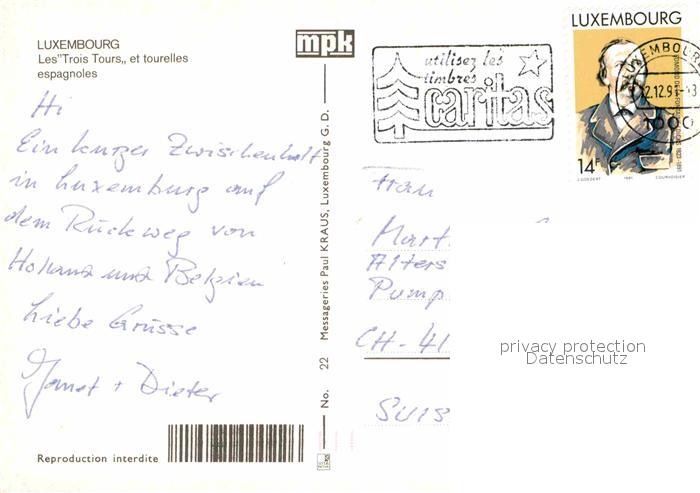 LUXEMBOURG
Les"Trois Tours„ et tourelles
espagnoles
mpk
Hi
Ein kurzer Zwischenhalt
in Luxemburg auf
dem Rückweg von
Holland und Belgien
Liebe Grüsse
+ Dieter
Reproduction interdite
No. 22 Messageries Paul KRAUS, Luxembourg G. D.
utilisez les
timbres
caritas
LUXEMBOURG
LUXEMBOURG
14F
1991
Frau
Mart
Alters
Pump
CH-41
SUIS
privacy protection
Datenschutz